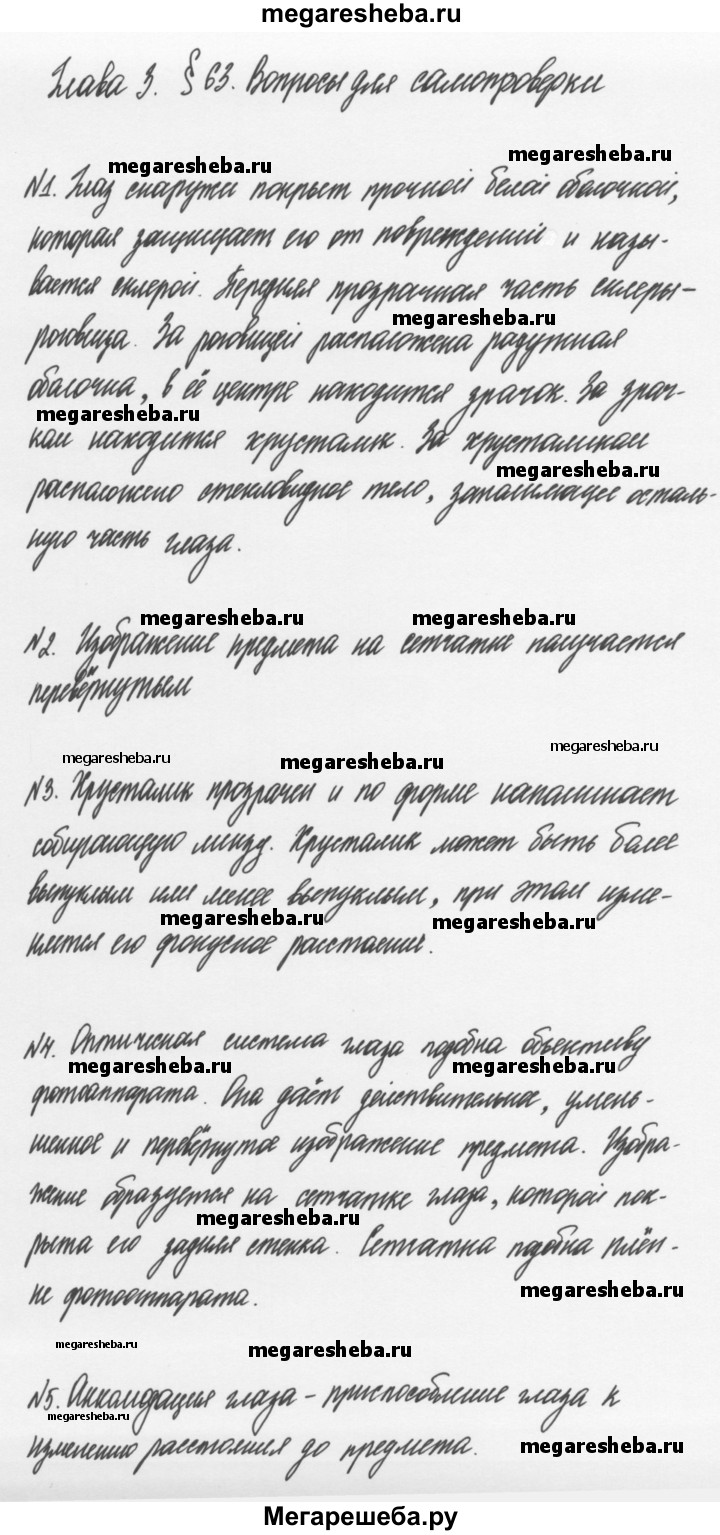 megaresheba.ru
Глава 3. § 63. Вопросы для самопроверки
megaresheba.ru
megaresheba.ru
№1. Глаз снаружи покрыт прочной белой оболочкой,
которая защищает его от повреждений и назы-
вается склерой. Передняя прозрачная часть склеры -
megaresheba.ru
роговица. За роговицей расположена радужная
оболочка, в её центре находится зрачок. За зрач-
megaresheba.ru
ком находится хрусталик. За хрусталиком
megaresheba.ru
расположено стекловидное тело, заполняющее осталь-
ную часть глаза.
megaresheba.ru megaresheba.ru
№2. Изображение предмета на сетчатке получается
перевёрнутым
megaresheba.ru megaresheba.ru megaresheba.ru
№3. Хрусталик прозрачен и по форме напоминает
собирающую линзу. Хрусталик может быть более
выпуклым или менее выпуклым, при этом изме-
megaresheba.ru megaresheba.ru
няется его фокусное расстояние.
№4. Оптическая система глаза подобна объективу
megaresheba.ru megaresheba.ru
фотоаппарата. Она даёт действительное, умень-
шенное и перевёрнутое изображение предмета. Изобра-
жение образуется на сетчатке глаза, которой пок-
megaresheba.ru
рыта его задняя стенка. Сетчатка подобна плён-
megaresheba.ru
ке фотоаппарата.
megaresheba.ru megaresheba.ru
№5. Аккомодация глаза - приспособление глаза к
megaresheba.ru
изменению расстояния до предмета.
megaresheba.ru
Мегарешеба.ру